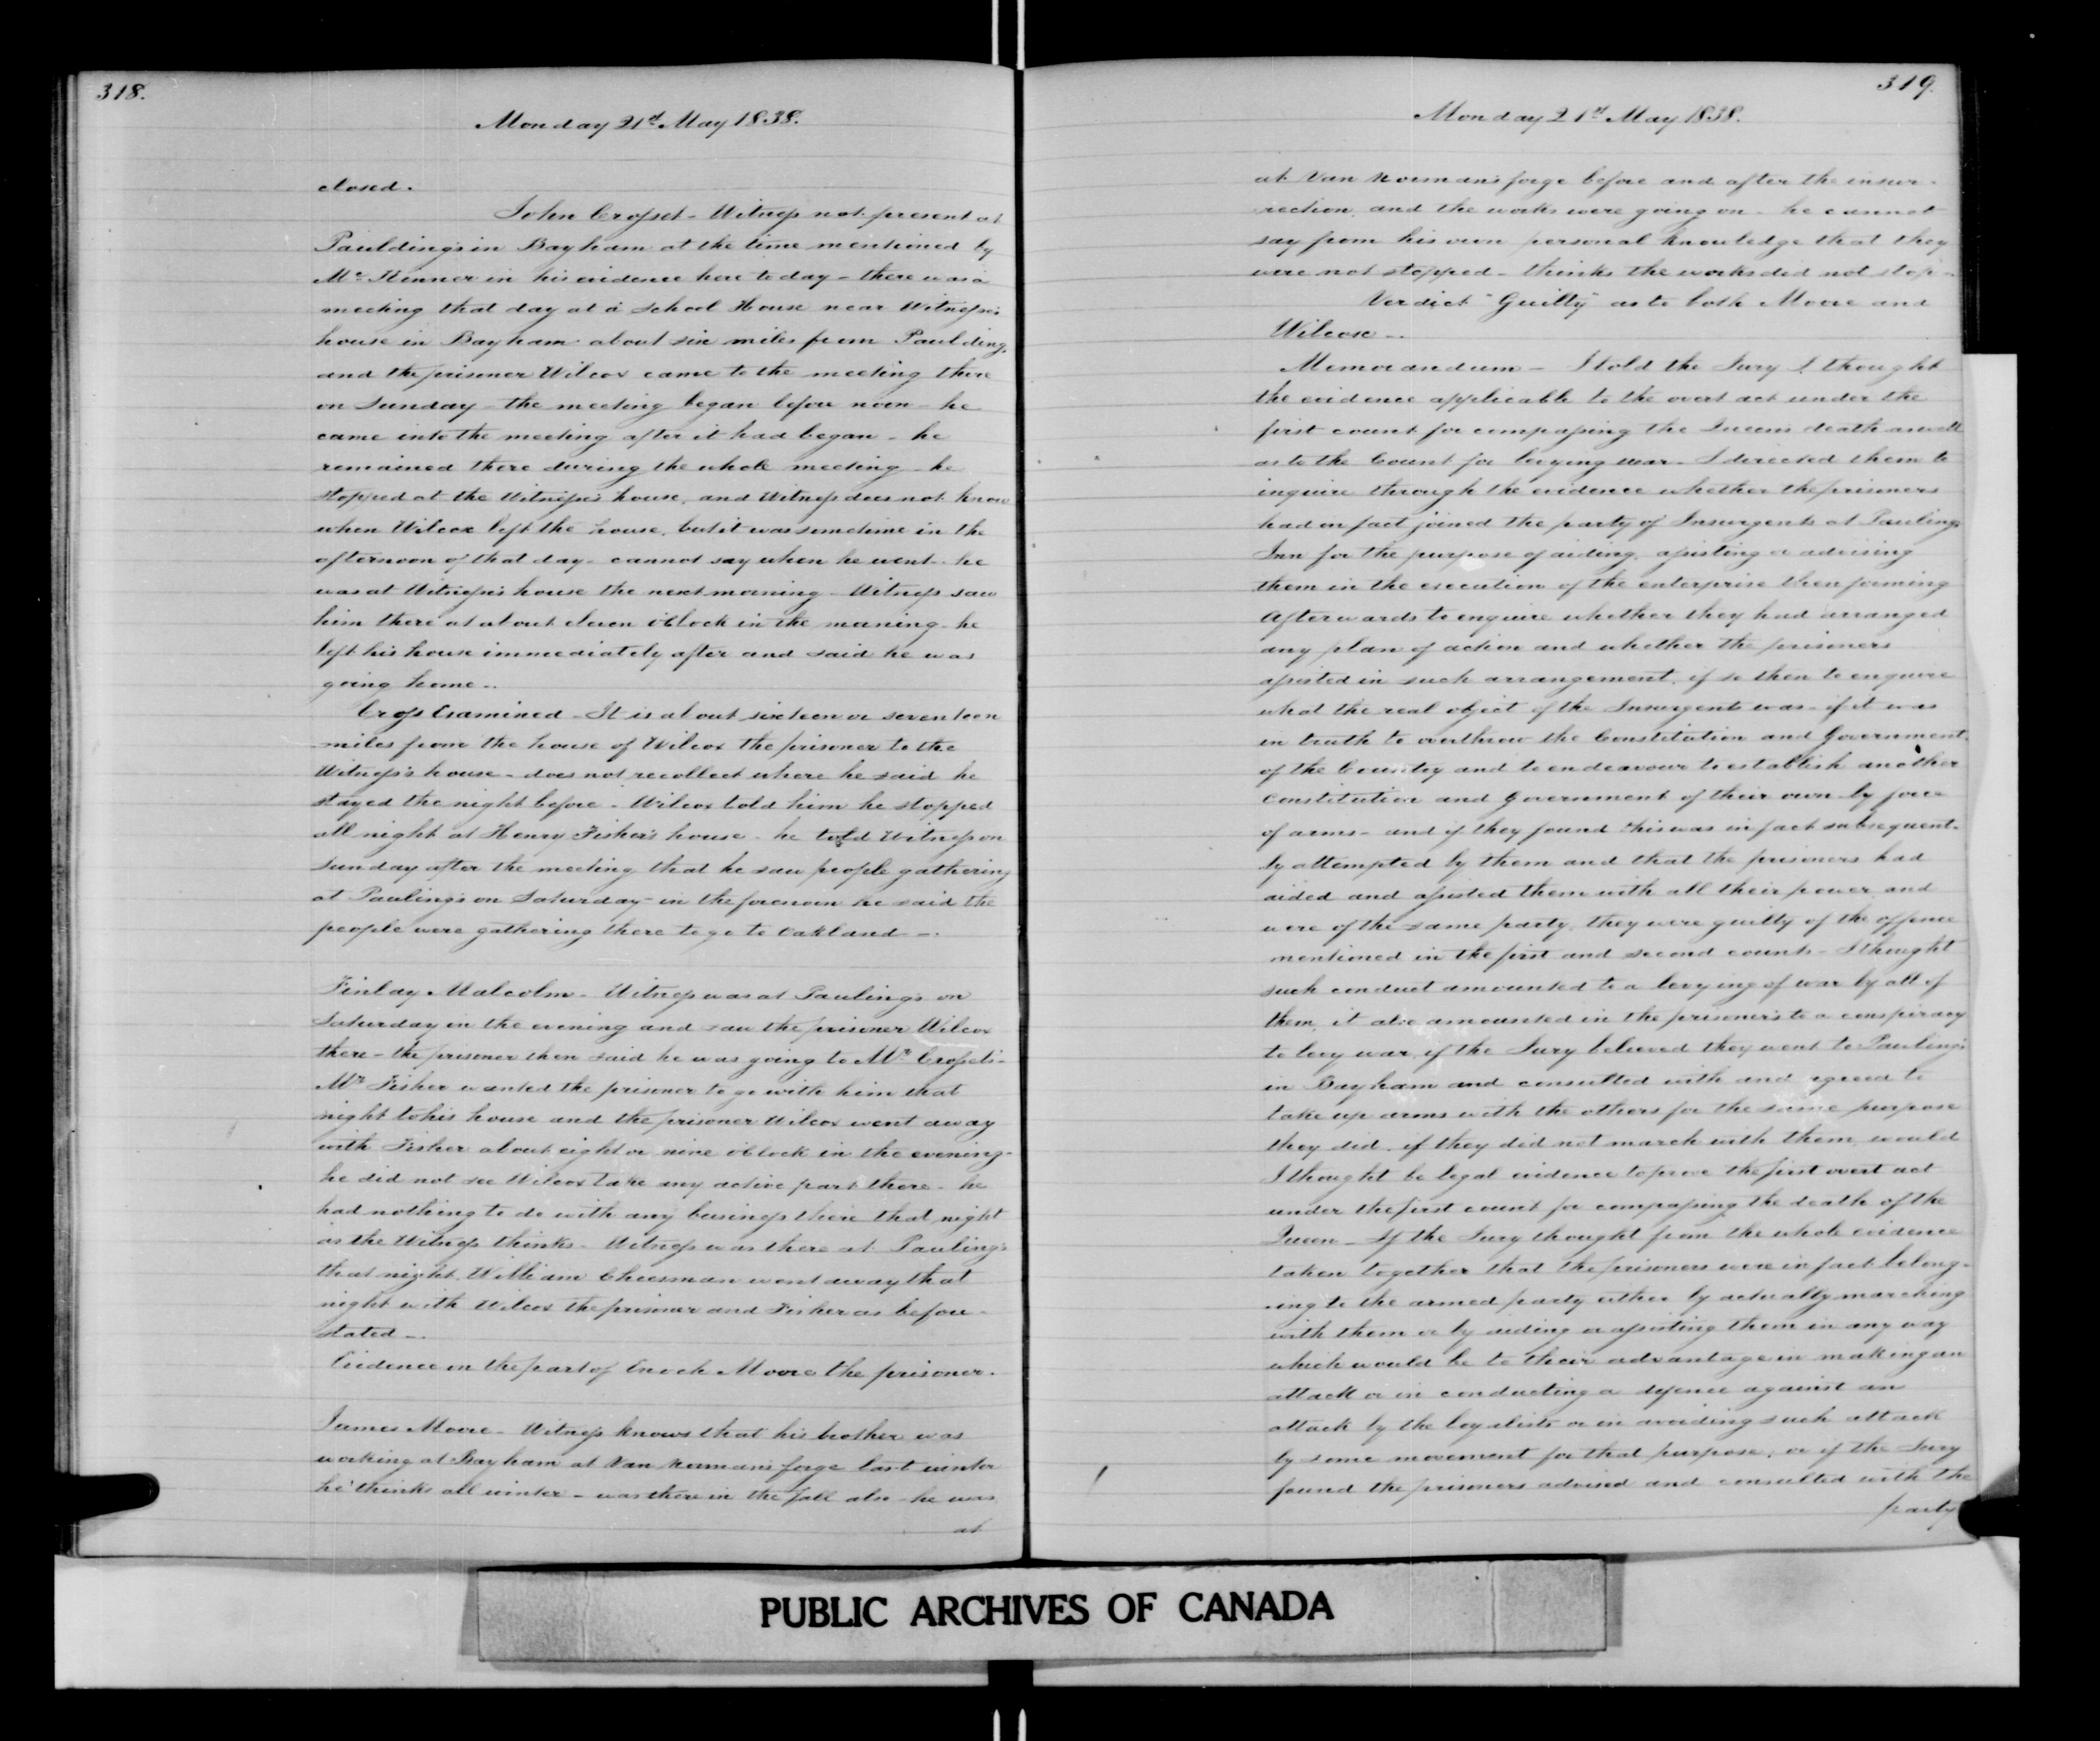 318.
Monday 21st May 1838.
closed.
John Crosset - Witness not present at
Pauldings in Bayham at the time mentioned by
Mr Skinner in his evidence here to day - there was a
meeting that day at a School House near Witness's
house in Bayham about six miles from Pauldings,
and the prisoner Wilcox came to the meeting there
on Sunday - the meeting began before noon - he
came into the meeting after it had began - he
remained there during the whole meeting - he
stopped at the Witness's house, and Witness does not know
when Wilcox left the house, but it was sometime in the
afternoon of that day - cannot say when he went - he
was at Witness's house the next morning - Witness saw
him there at about eleven o'Clock in the morning - he
left his house immediately after and said he was
going home -
Cross Examined - It is about sixteen or seventeen
miles from the house of Wilcox the prisoner to the
Witness's house - does not recollect where he said he
stayed the night before - Wilcox told him he stopped
all night at Henry Fisher's house - he told Witness on
Sunday after the meeting that he saw people gathering
at Pauling's on Saturday - in the forenoon he said the
people were gathering there to go to Oakland -
Finlay Malcolm - Witness was at Pauling's on
Saturday in the evening and saw the prisoner Wilcox
there - the prisoner then said he was going to Mr Crosset's -
Mr Fisher wanted the prisoner to go with him that
night to his house and the prisoner Wilcox went away
with Fisher about eight or nine o'Clock in the evening -
he did not see Wilcox take any active part there - he
had nothing to do with any business there that night
as the Witness thinks - Witness was there at Pauling's
that night. William Cheesman went away that
night with Wilcox the prisoner and Fisher as before
stated -
Evidence on the part of Enoch Moore the prisoner.
James Moore - Witness knows that his brother was
working at Bayham at Van Norman's forge last winter
he thinks all winter - was there in the fall also - he was
at
319.
Monday 21st May 1838.
at Van Norman's forge before and after the insur-
rection, and the works were going on - he cannot
say from his own personal knowledge that they
were not stopped - thinks the works did not stop -
Verdict "Guilty" as to both Moore and
Wilcox -
Memorandum - I told the Jury I thought
the evidence applicable to the overt act under the
first count for compassing the Queen's death as well
as to the Count for levying war - I directed them to
inquire through the evidence whether the prisoners
had in fact joined the party of Insurgents at Pauling's
Inn for the purpose of aiding, assisting or advising
them in the execution of the enterprise then forming
Afterwards to enquire whether they had arranged
any plan of action and whether the prisoners
assisted in such arrangement, if so then to enquire
what the real object of the Insurgents was - if it was
in truth to overthrow the Constitution and Government
of the Country and to endeavour to establish another
Constitution and Government of their own by force
of arms - and if they found this was in fact subsequent-
ly attempted by them and that the prisoners had
aided and assisted them with all their power and
were of the same party, they were guilty of the offence
mentioned in the first and second counts - I thought
such conduct amounted to a levying of war by all of
them, it also amounted in the prisoners to a conspiracy
to levy war, if the Jury believed they went to Pauling's
in Bayham and consulted with and agreed to
take up arms with the others for the same purpose
they did, if they did not march with them, would
I thought be legal evidence to prove the first overt act
under the first count for compassing the death of the
Queen - If the Jury thought from the whole evidence
taken together that the prisoners were in fact belong-
ing to the armed party either by actually marching
with them or by aiding or assisting them in any way
which would be to their advantage in making an
attack or in conducting a defence against an
attack by the loyalists or in avoiding such attack
by some movement for that purpose, or if the Jury
found the prisoners advised and consulted with the
party
PUBLIC ARCHIVES OF CANADA